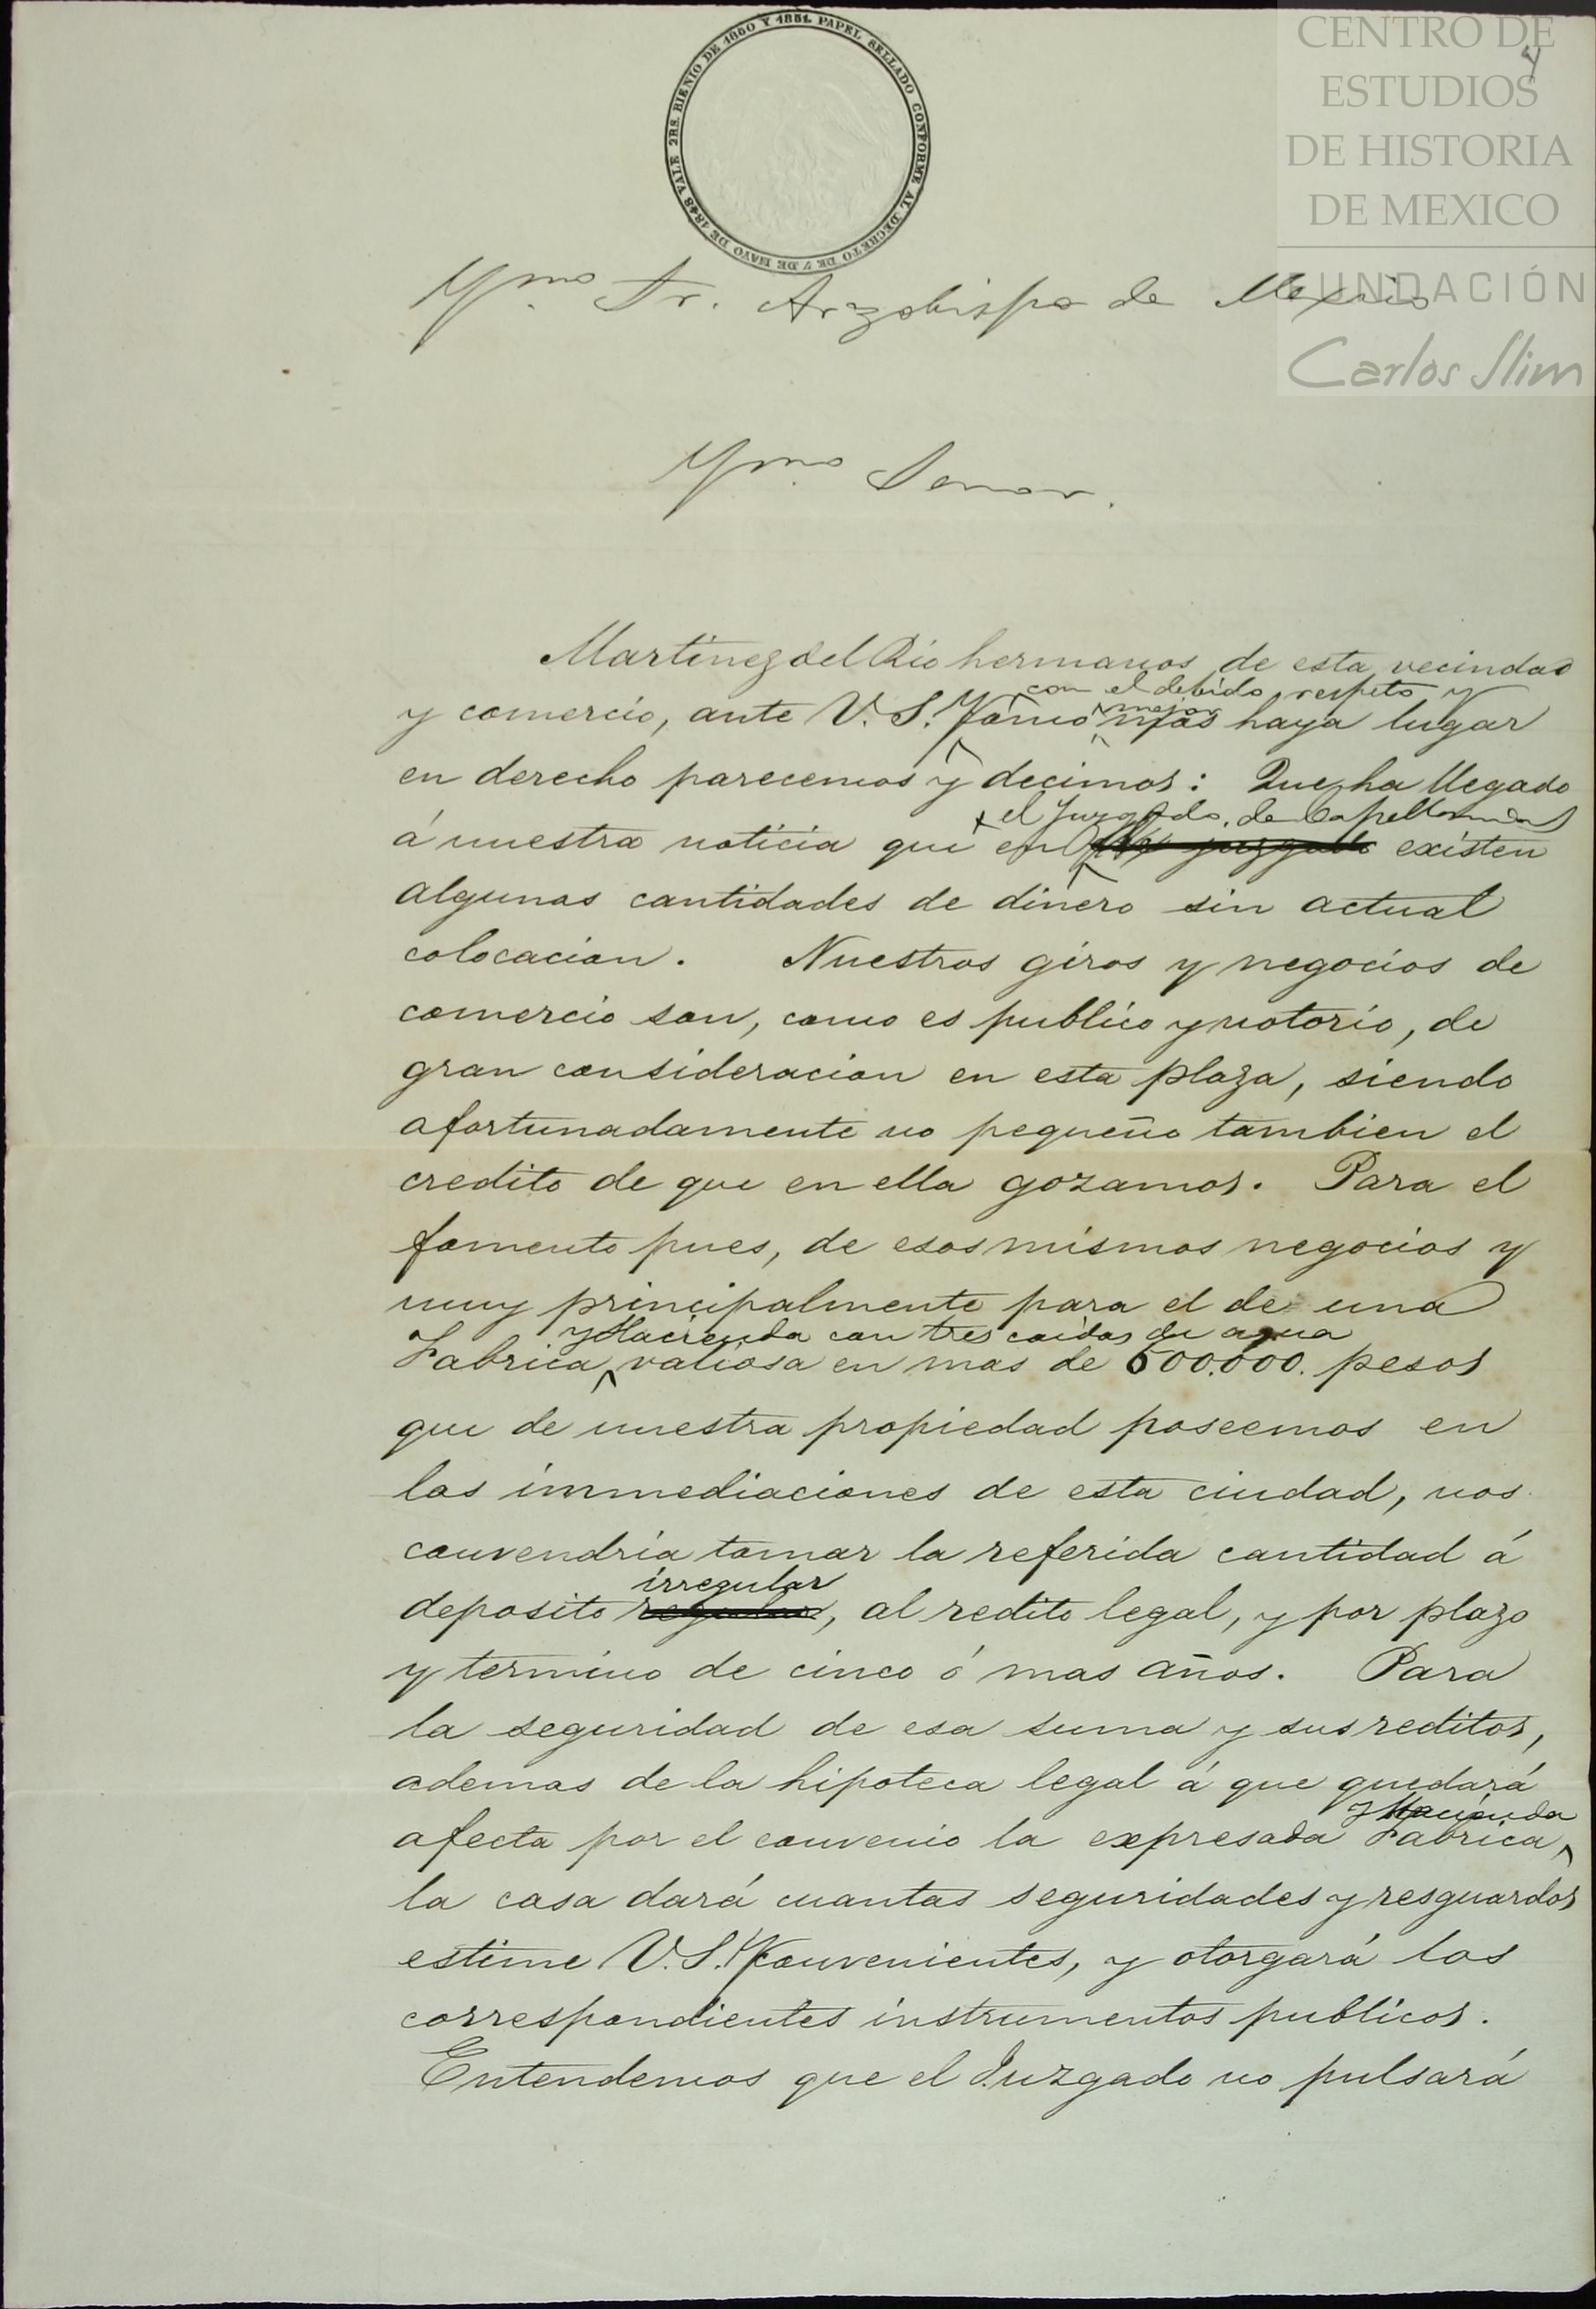 2RS. BIENIO DE 1850 Y 1851. PAPEL SELLADO CONFORME AL DECRETO DE 7 DE MAYO DE 1848 VALE
CENTRO DE
ESTUDIOS
DE HISTORIA
DE MEXICO
FUNDACIÓN
Carlos Slim
4
Yⁿᵐᵒ Sr. Arzobispo de Mexico
Yᵐᵒ Senor.
Martinez del Rio hermanos, de esta vecindad
con el debido respeto y
mejor
y comercio, ante V. S. Y como mas haya lugar
en derecho parecemos y decimos: Que ha llegado
el Juzgado de Capellanias
á nuestra noticia que en juzgado existen
algunas cantidades de dinero sin actual
colocacion. Nuestros giros y negocios de
comercio son, como es publico y notorio, de
gran consideracion en esta plaza, siendo
afortunadamente no pequeño tambien el
credito de que en ella gozamos. Para el
fomento pues, de esos mismos negocios y
muy principalmente para el de una
y Hacienda con tres caidas de agua
Fabrica, valiosa en mas de 600.000. pesos
que de nuestra propiedad poseemos en
las immediaciones de esta ciudad, nos
convendria tomar la referida cantidad á
irregular
deposito regular, al redito legal, y por plazo
y termino de cinco ó mas años. Para
la seguridad de esa suma y sus reditos,
ademas de la hipoteca legal á que quedará
y Hacienda
afecta por el convenio la expresada Fabrica,
la casa dará cuantas seguridades y resguardos
estime V. S. Y convenientes, y otorgará los
correspondientes instrumentos publicos.
Entendemos que el Juzgado no pulsará